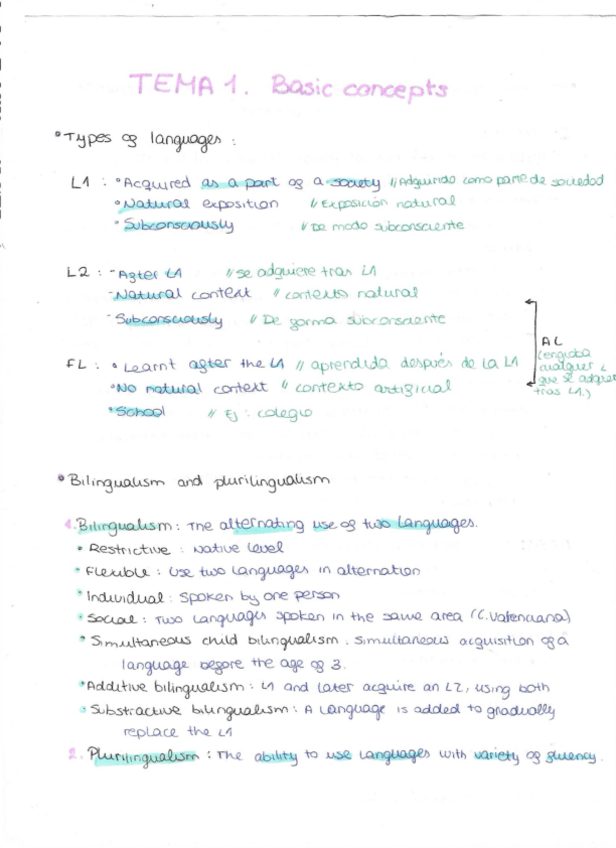 TEMA 1. Basic concepts
• Types of languages :
L1 : • Acquired as a part of a society // Adquirido como parte de sociedad
• Natural exposition // Exposición natural
• Subconsciously // De modo subconsciente
L2 : - After L1 // Se adquiere tras L1
- Natural context // contexto natural
- Subconsciously // De forma subconsciente
FL : • Learnt after the L1 // aprendida después de la L1
• No natural context // contexto artificial
• School // Ej : colegio
AL
(engloba
cualquier L
que se adquiere
tras L1.)
• Bilingualism and plurilingualism
1. Bilingualism : The alternating use of two languages.
• Restrictive : Native level
• Flexible : Use two languages in alternation
• Individual : Spoken by one person
• Social : Two languages spoken in the same area (C. Valenciana)
• Simultaneous child bilingualism . Simultaneous acquisition of a
language before the age of 3.
• Additive bilingualism : L1 and later acquire an L2, using both
• Substractive bilingualism : A language is added to gradually
replace the L1
2. Plurilingualism : The ability to use languages with variety of fluency.